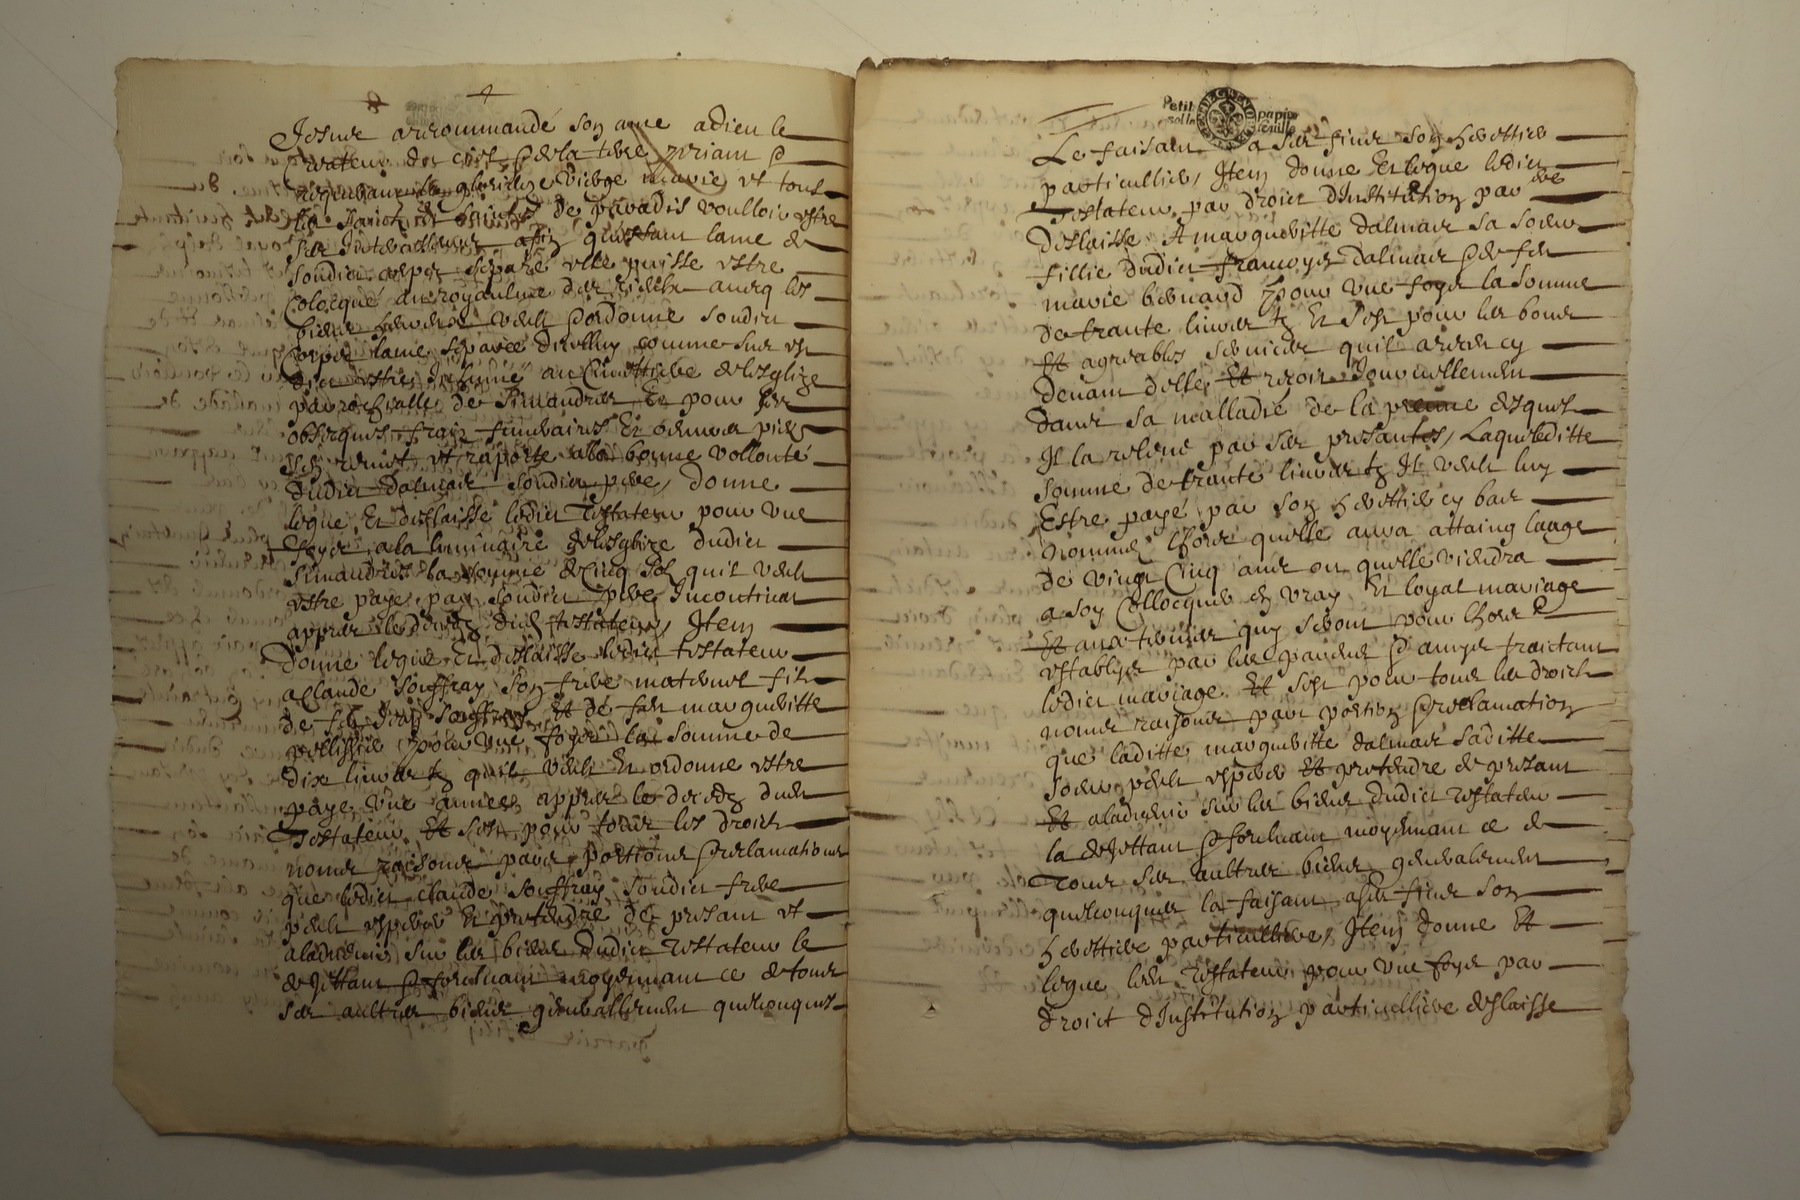 4
Icelluy a recommandé son ame a dieu le
Createur du ciel & de la terre priant &
requerant la glorieuze vierge marie et tous
les Sainctz et Sainctes de paradis voulloir estre
ses Intercesseurs affin questant lame de
sondict corps separé elle puisse estre
Colocqué au royaulme des cieulx aveq les
bienheureux veult & ordonne sondict
Corps lame separée dicelluy comme sus est
dict estre Inhumé au Cimettiere de lesglize
parrochialle de Simandres Et pour ses
obseques fraiz funeraires Et œuvres pies
sen remet et raporte a la bonne vollonté
dudict dalmais sondict pere, donne
legue Et deslaisse ledict Testateur pour une
foys a la luminaire de lesglize dudict
Simandres la somme de Cinq solz quil veult
estre payé par sondict pere Incontinant
appres le decedz dud testateur, Item
Donne legue Et deslaisse ledict testateur
a Claude Souffray son frere maternel filz
de feu Souffray Et de feue margueritte
pellissié pour une foys la somme de
dix livres tz quil veult Et ordonne estre
paye une année appres le decedz dud
Testateur Et ce pour tous les droictz
noms raisons partz portions & reclamations
que ledict claude Souffray sondict frere
peult esperer Et pretendre de presant et
aladvenir sur les biens dudict testateur le
dejettant & forcluant moyennant ce de tous
ses aultres biens generallement quelconques
Petit papier
solz feuille
GREN
Le faisant a ses fins son herettier
particullier, Item donne Et legue ledict
Testateur par droict dInstitution par
Deslaisse A margueritte dalmais sa soeur
fillie dudict françoys dalmais & de feue
marie bernard pour une foys la somme
de trante livres tz Et ce pour les bons
Et agreables services quil a receu cy
devant delle Et recoit Journellement
dans sa malladie de la preuve desques
Il la releve par ses presantes, Laquelleditte
somme de trante livres tz Il veult luy
Estre payé par son herettier cy bas
nommé lhors quelle aura attaing laage
de vingt Cinq ans ou quelle viendra
a soy Collocquer en vray Et loyal mariage
Et aux termes quy seront pour lhors
establys par les parens & amys traictant
ledict mariage Et ce pour tous les droictz
noms raisons part portion & reclamation
que laditte margueritte dalmais saditte
soeur peult esperer Et pretendre de presant
Et aladvenir sur les biens dudict testateur
la dejettant & forcluant moyennant ce de
Tous ses aultres biens generalement
quelconques la faisant a ses fins son
herettiere particulliere, Item donne Et
legue led testateur pour une foys par
droict dInstitution particulliere deslaisse